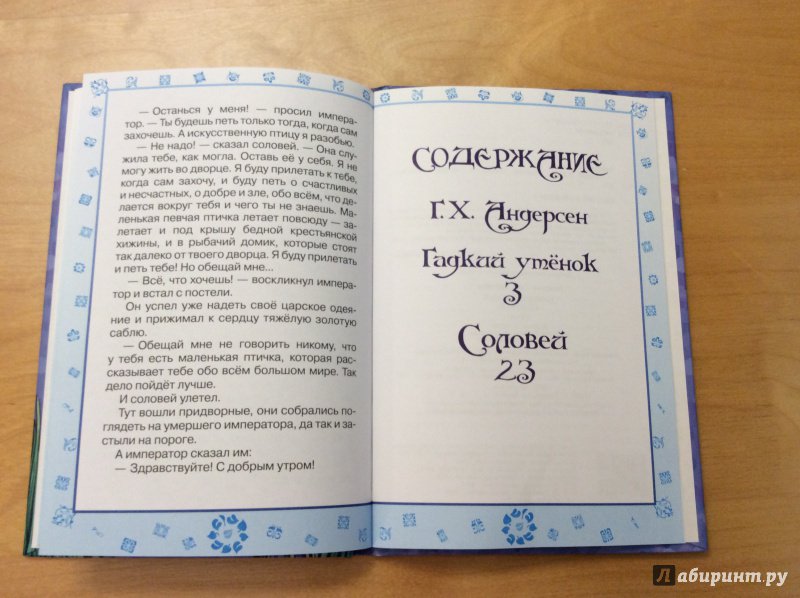 — Останься у меня! — просил импера-
тор. — Ты будешь петь только тогда, когда сам
захочешь. А искусственную птицу я разобью.
— Не надо! — сказал соловей. — Она слу-
жила тебе, как могла. Оставь её у себя. Я не
могу жить во дворце. Я буду прилетать к тебе,
когда сам захочу, и буду петь о счастливых
и несчастных, о добре и зле, обо всём, что де-
лается вокруг тебя и чего ты не знаешь. Ма-
ленькая певчая птичка летает повсюду — за-
летает и под крышу бедной крестьянской
хижины, и в рыбачий домик, которые стоят
так далеко от твоего дворца. Я буду прилетать
и петь тебе! Но обещай мне...
— Всё, что хочешь! — воскликнул импера-
тор и встал с постели.
Он успел уже надеть своё царское одея-
ние и прижимал к сердцу тяжёлую золотую
саблю.
— Обещай мне не говорить никому, что
у тебя есть маленькая птичка, которая рас-
сказывает тебе обо всём большом мире. Так
дело пойдёт лучше.
И соловей улетел.
Тут вошли придворные, они собрались по-
глядеть на умершего императора, да так и за-
стыли на пороге.
А император сказал им:
— Здравствуйте! С добрым утром!
СОДЕРЖАНИЕ
Г.Х. Андерсен
Гадкий утёнок
3
Соловей
23
Лабиринт.ру